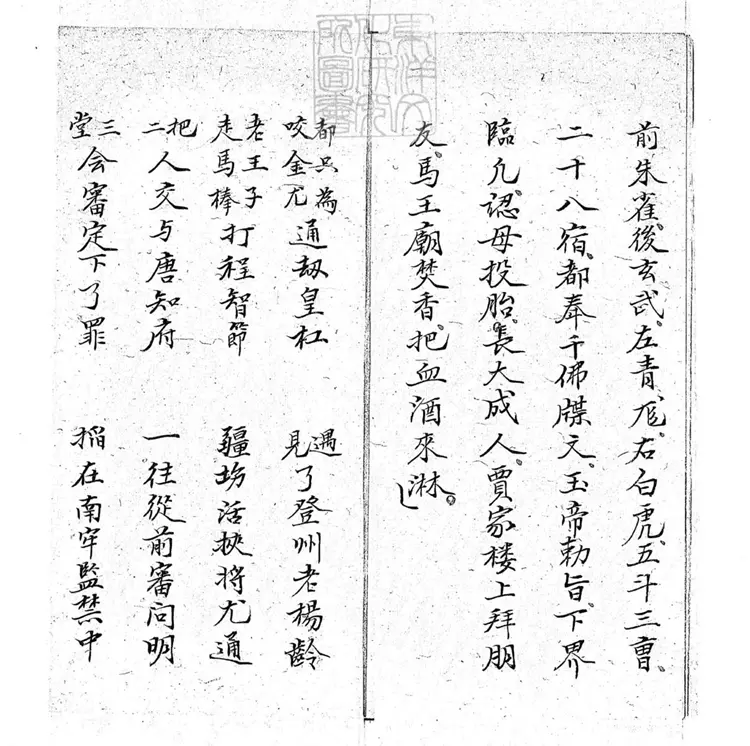 東洋文化研究所圖書
前朱雀、後玄武、左青尨、右白虎、五斗三曺、
二十八宿、都奉千佛牒文、玉帝勅旨、下界
臨凡、認母投胎、長大成人、賈家楼上拜朋
友、馬王廟焚香、把血酒來淋。
都只為咬金尤通刼皇杠 遇見了登州老楊齡
老王子走馬棒打程智節 疆場活挾将尤通
把二人交与唐知府 一往從前審问明
三堂会審定下了罪 掐在南牢監禁中